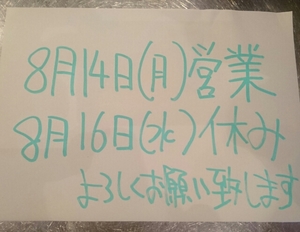 8月14日(月)営業
8月16日(水)休み
よろしくお願い致します